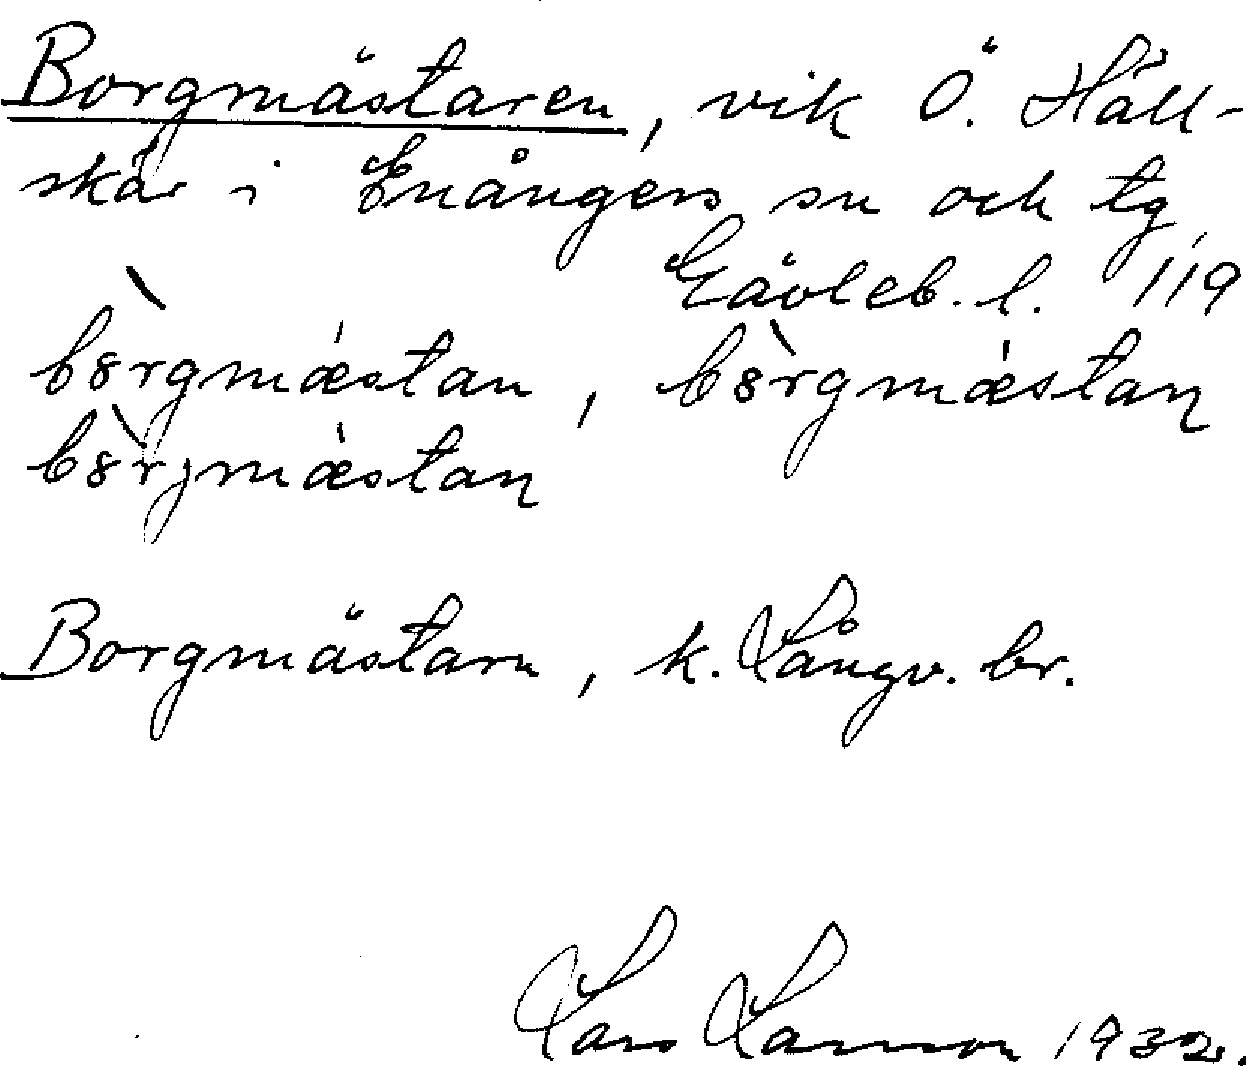 Borgmästaren, vik Ö. Häll-
skär i Enångers sn och tg,
Gävleb. l. 119
bȣ̀rgmǽstan, bȣ̀rgmǽstaɳ
bȣ̀rjmǽstaɳ
Borgmästarn, k. Långv. br.
Lars Larsson 1932.